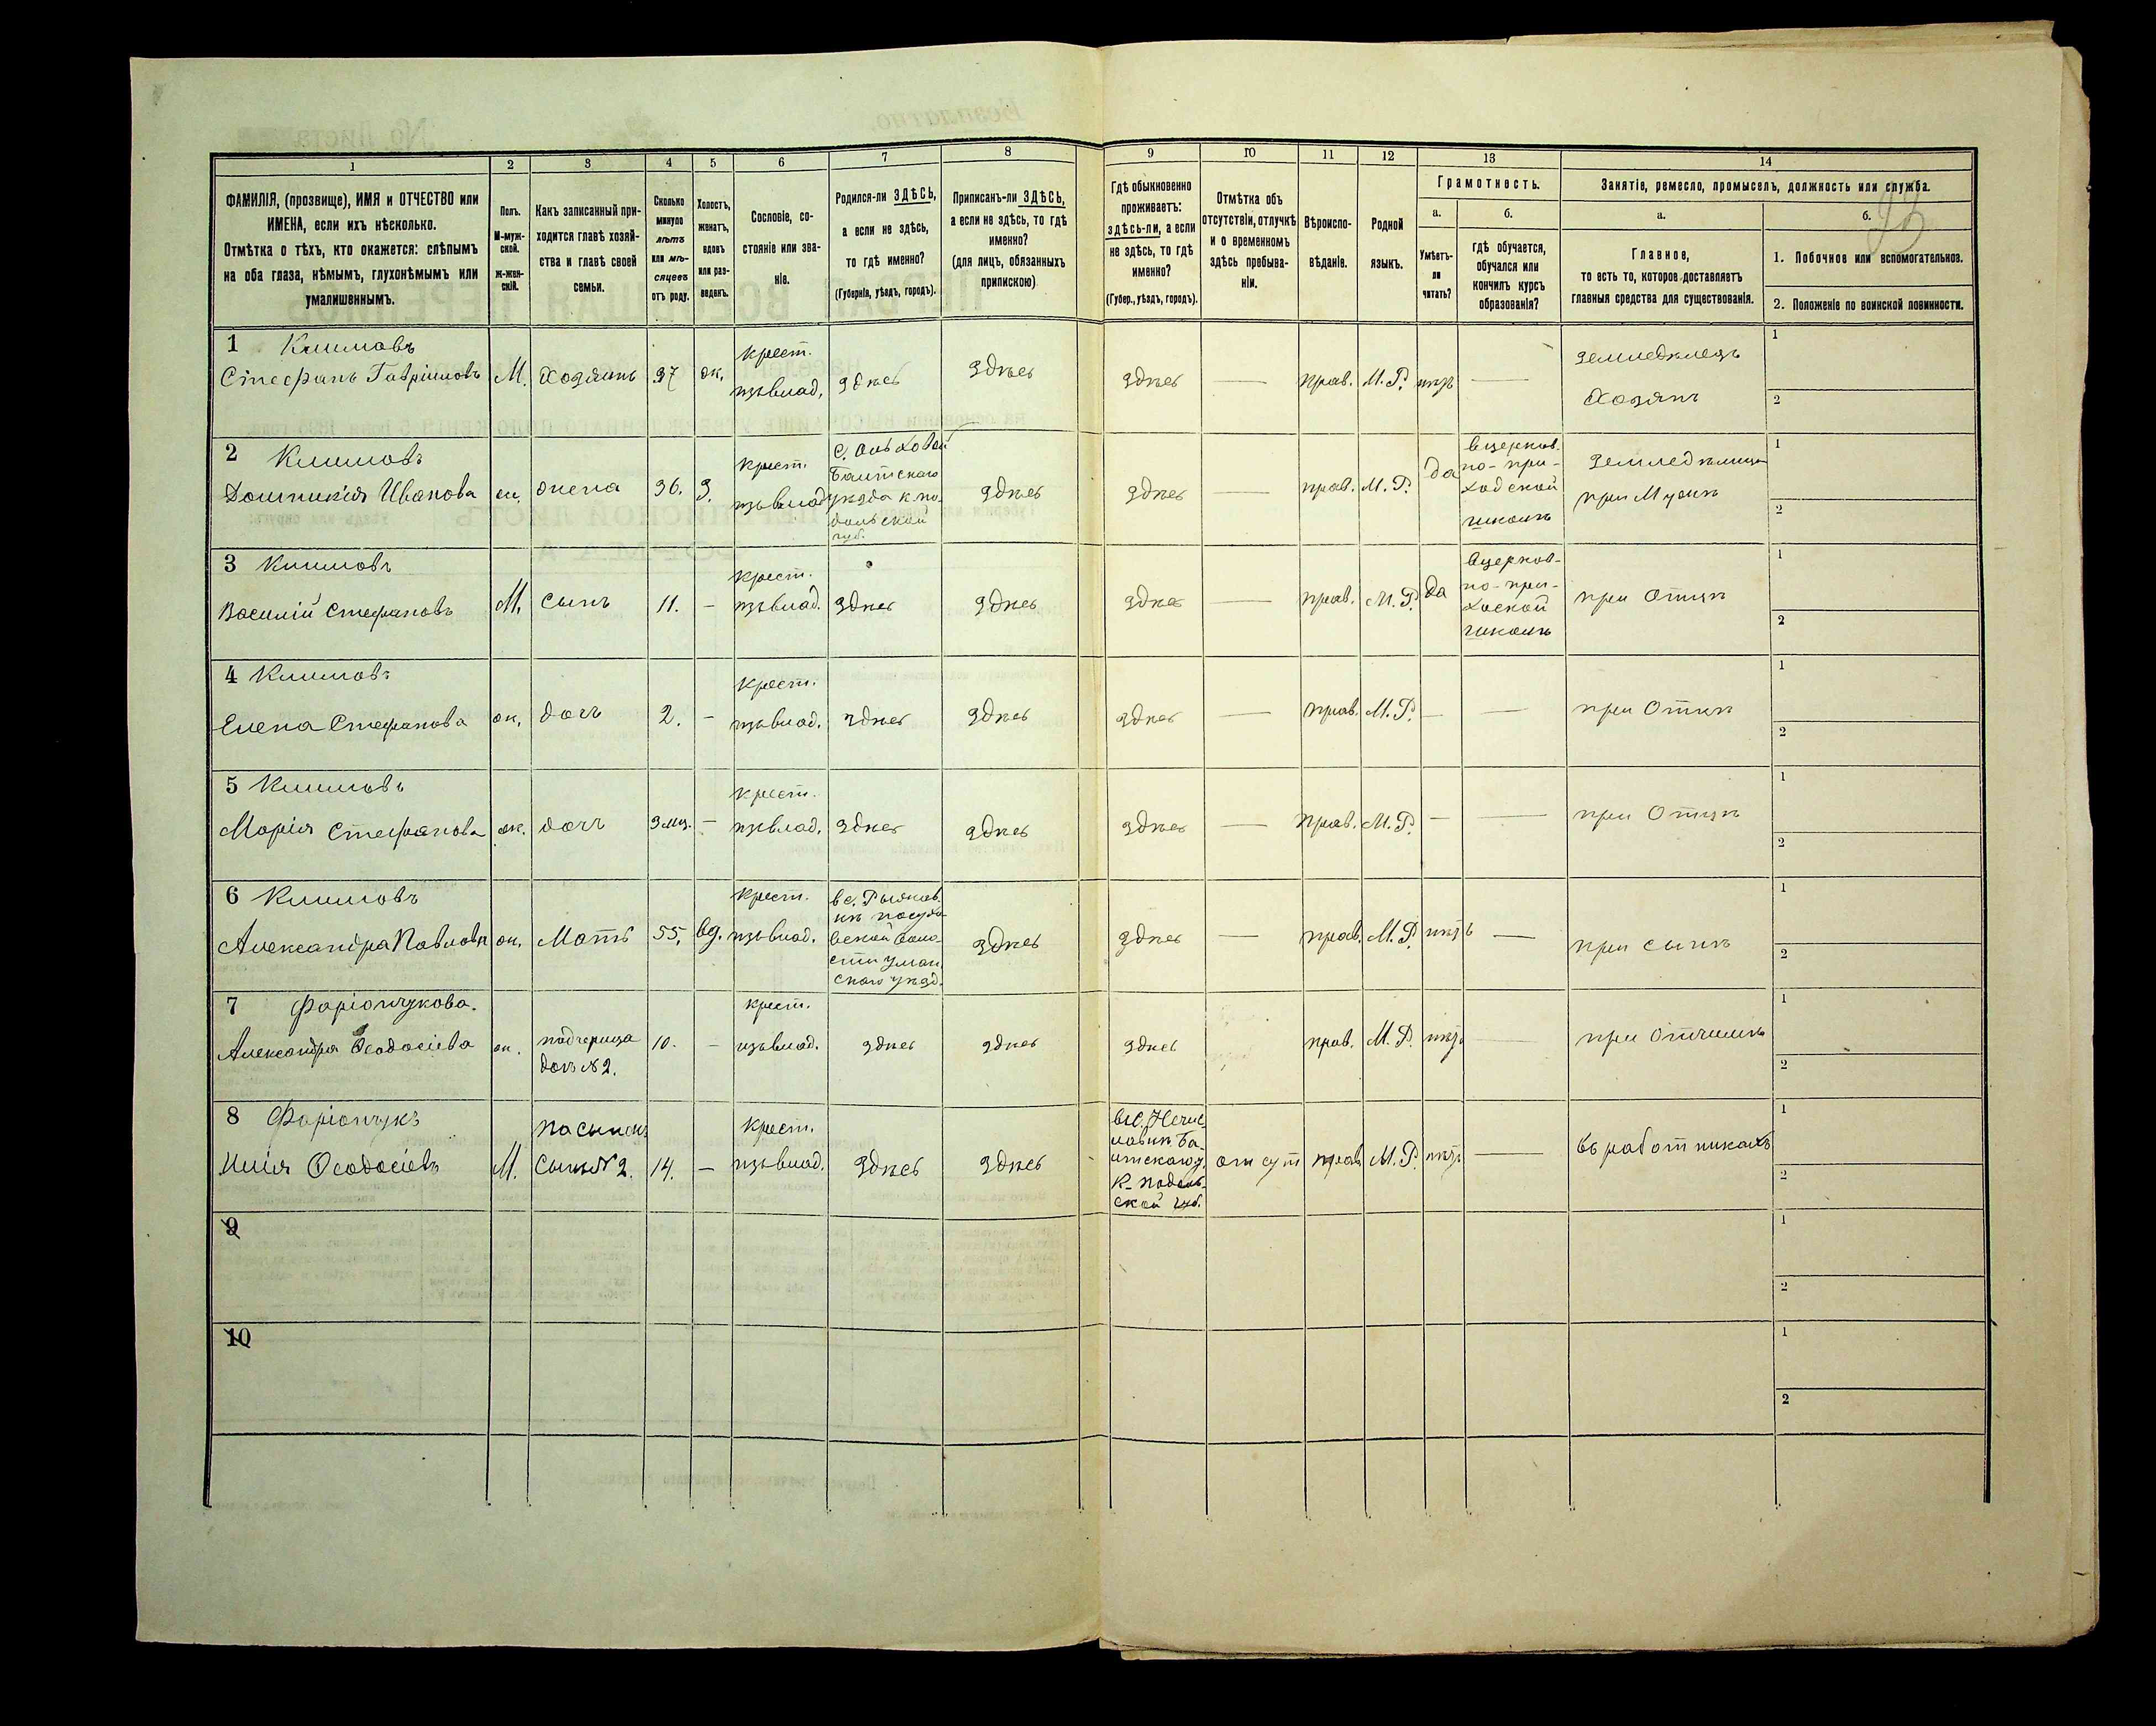 1
2
3
4
5
6
7
8
9
10
11
12
13
14
ФАМИЛІЯ, (прозвище), ИМЯ и ОТЧЕСТВО или
ИМЕНА, если ихъ нѣсколько.
Отмѣтка о тѣхъ, кто окажется: слѣпымъ
на оба глаза, нѣмымъ, глухонѣмымъ или
умалишеннымъ.
Полъ.
М-муж-
ской.
ж-жен-
скій.
Какъ записанный при-
ходится главѣ хозяй-
ства и главѣ своей
семьи.
Сколько
минуло
лѣтъ
или мѣ-
сяцевъ
отъ роду.
Холостъ,
женатъ,
вдовъ
или раз-
веденъ.
Сословіе, со-
стояніе или зва-
ніе.
Родился-ли ЗДѢСЬ,
а если не здѣсь,
то гдѣ именно?
(Губернія, уѣздъ, городъ).
Приписанъ-ли ЗДѢСЬ,
а если не здѣсь, то гдѣ
именно?
(для лицъ, обязанныхъ
припискою)
Гдѣ обыкновенно
проживаетъ:
здѣсь-ли, а если
не здѣсь, то гдѣ
именно?
(Губер., уѣздъ, городъ).
Отмѣтка объ
отсутствіи, отлучкѣ
и о временномъ
здѣсь пребыва-
ніи.
Вѣроиспо-
вѣданіе.
Родной
языкъ.
Грамотность.
а.
б.
Умѣетъ-
ли
читать?
гдѣ обучается,
обучался или
кончилъ курсъ
образованія?
Занятіе, ремесло, промыселъ, должность или служба.
а.
б.
Главное,
то есть то, которое доставляетъ
главныя средства для существованія.
1. Побочное или вспомогательное.
2. Положеніе по воинской повинности.
1 Климовъ
Стефанъ Гавріиловъ М. Хозяинъ 37 ж. крест.
изъ влад. здѣсь здѣсь здѣсь — прав. М.Р. нѣтъ — земледѣлецъ
Хозяинъ
1
2
2 Климовъ
Домникія Иванова ж. жена 36. З. крест.
изъ влад. с. Ольховой
Балтскаго
уѣзда к. по-
дольской
губ. здѣсь здѣсь — прав. М.Р. да в церков.
но-при-
ходской
школѣ земледѣлица
при Мужѣ
1
2
3 Климовъ
Василій Стефановъ М. сынъ 11. — крест.
изъ влад. здѣсь здѣсь здѣсь — прав. М.Р. да в церков-
но-при-
хоской
школѣ при Отцѣ
1
2
4 Климовъ
Елена Стефанова ж. дочъ 2. — крест.
изъ влад. здѣсь здѣсь здѣсь — прав. М.Р. — — при Отцѣ
1
2
5 Климовъ
Марія Стефанова ж. дочъ 3 мц. — крест.
изъ влад. здѣсь здѣсь здѣсь — прав. М.Р. — — при Отцѣ
1
2
6 Климовъ
Александра Павловн ж. Мать 55. вд. крест.
изъ влад. в с.
вской воло-
сти уман.
скаго уѣзд. здѣсь здѣсь — прав. М.Р. нѣтъ — при сынѣ
1
2
7 Фаріончукова.
Александра Ѳеодосіева ж. подчерица
дочъ №2. 10. — крест.
изъ влад. здѣсь здѣсь здѣсь прав. М.Р. нѣтъ — при Отчимѣ
1
2
8 Фаріончукъ
Илія Ѳеодосіевъ М. пасынокъ
сынъ №2. 14. — крест.
изъ влад. здѣсь здѣсь
К-подоль-
ской губ. отсут прав. М.Р. нѣтъ — въ работникахъ
1
2
9
1
2
10
1
2